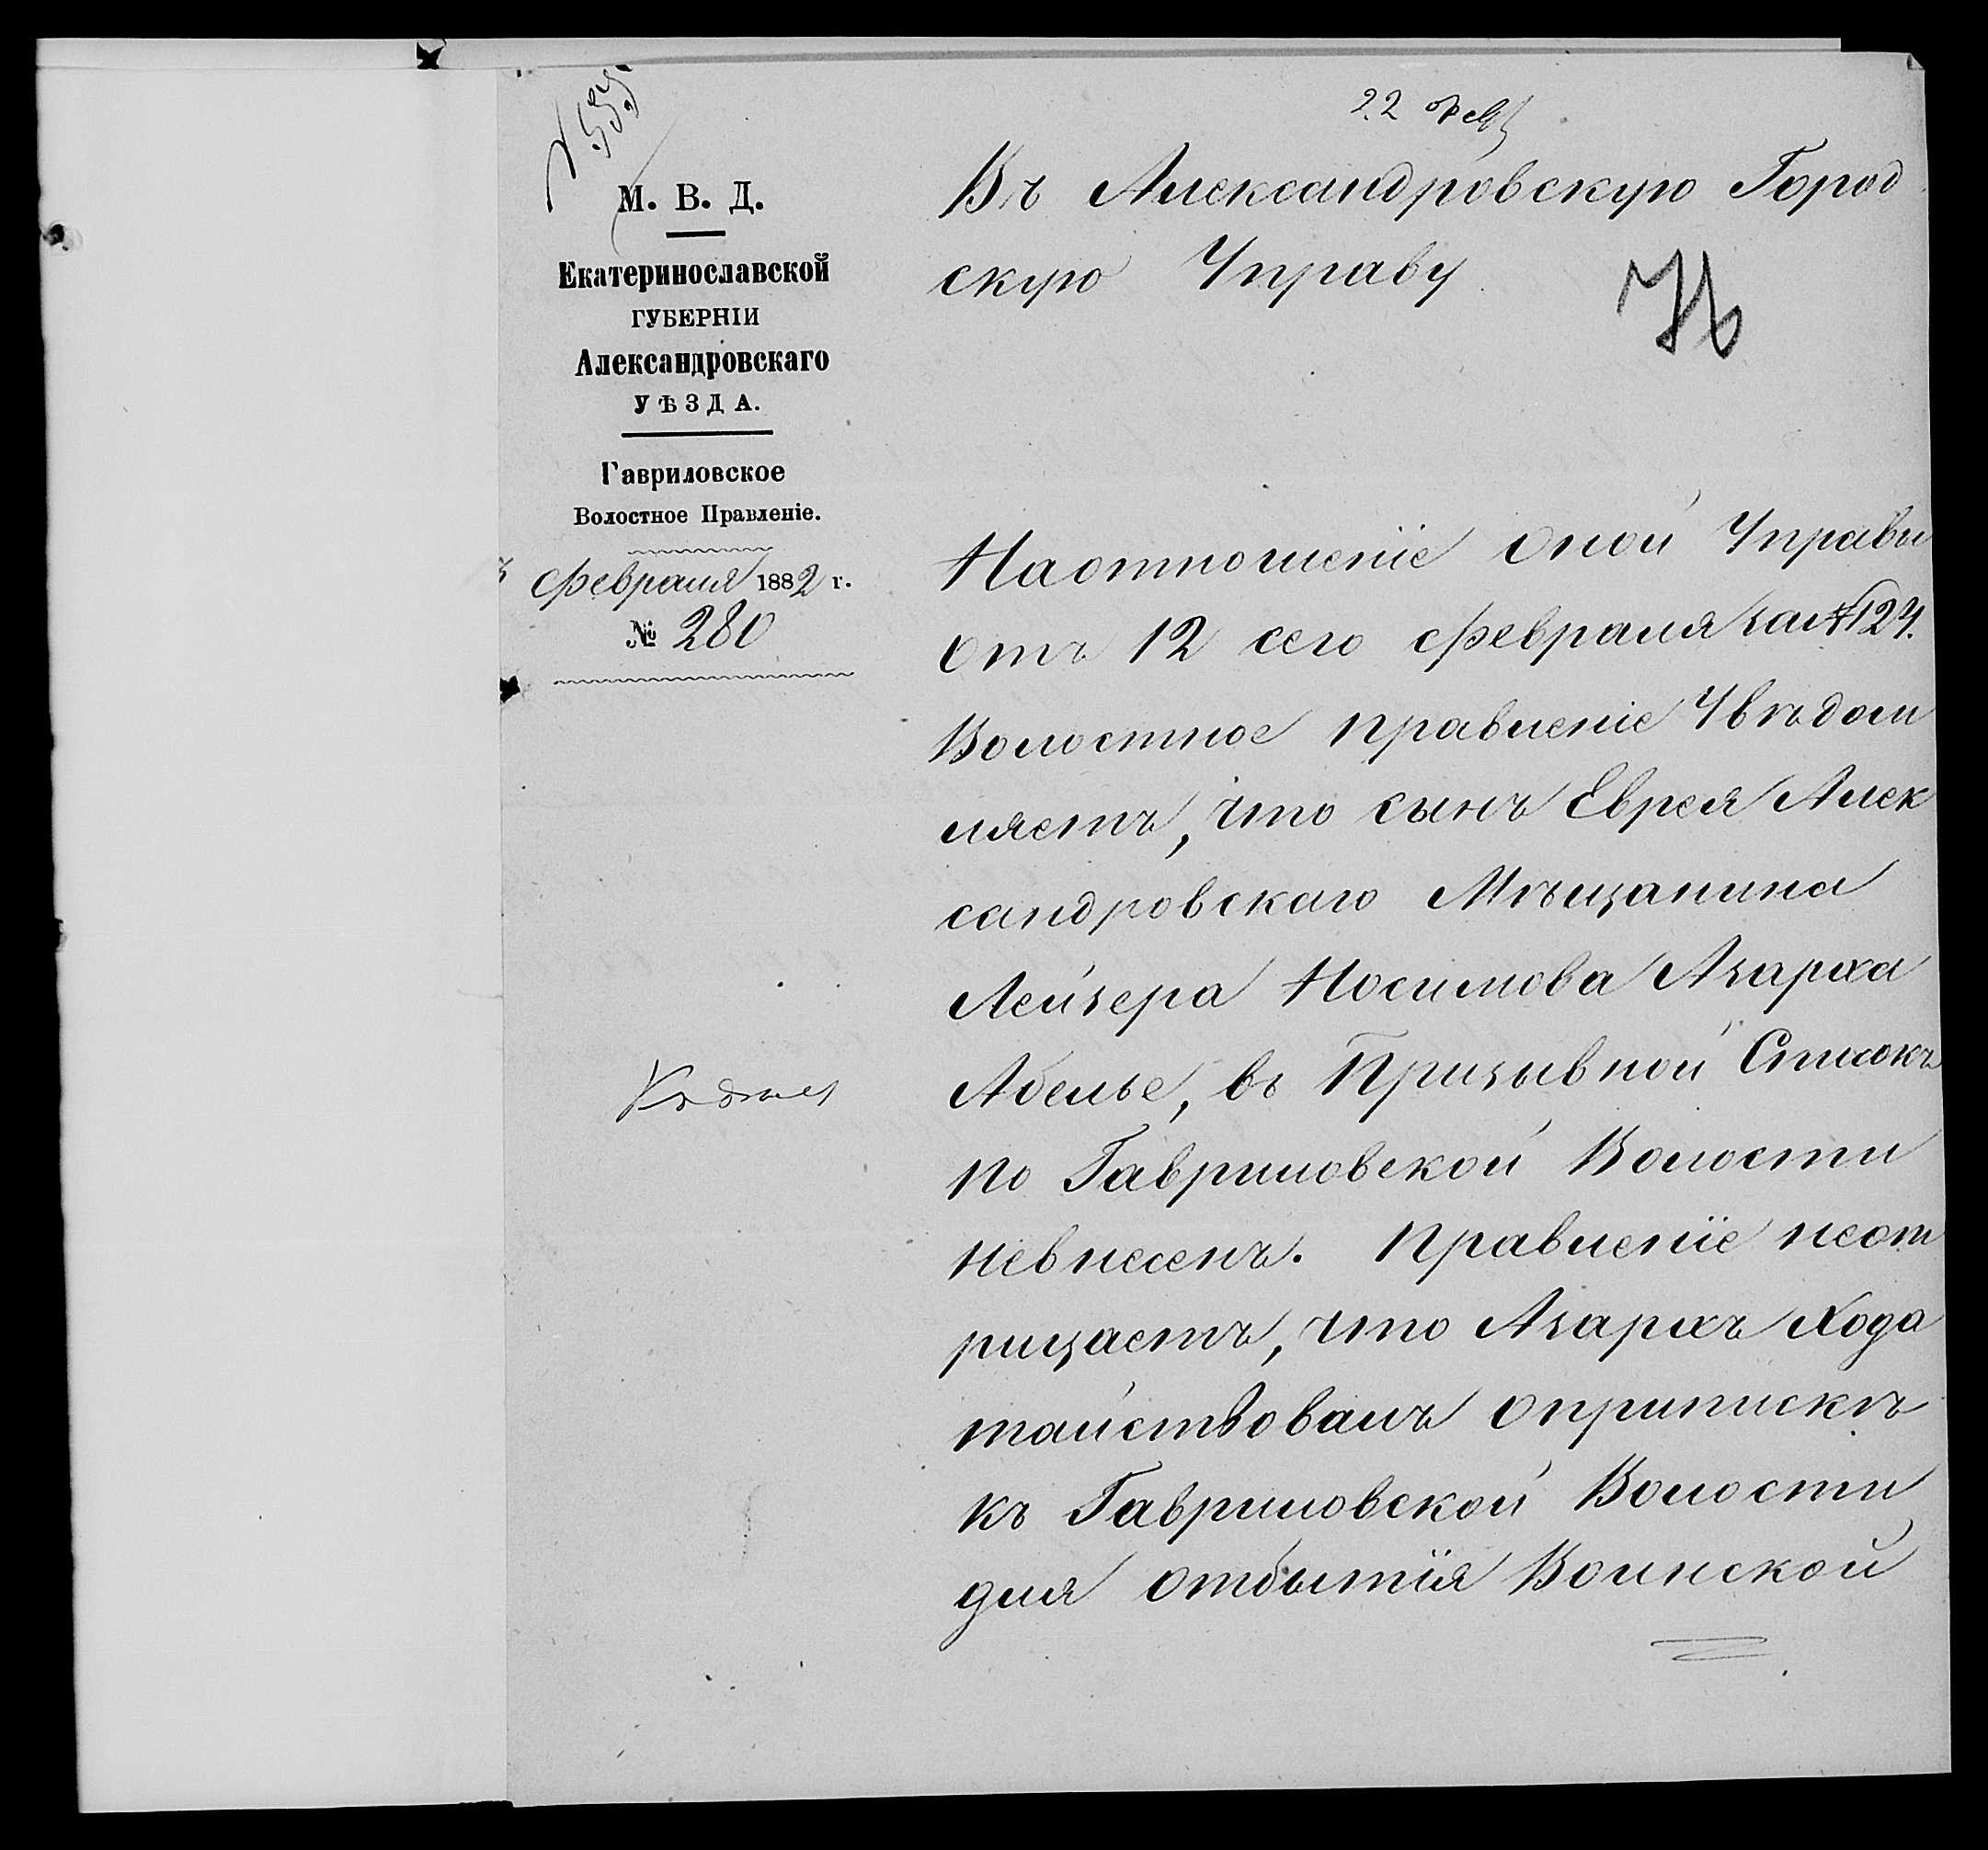 № 535
22 Фев
М. В. Д.
Екатеринославской
ГУБЕРНІИ
Александровскаго
УѢЗДА.
Гавриловское
Волостное Правленіе.
Февраля 1882 г.
№ 280
Въ Александровскую Город
скую Управу
На отношеніе оной Управы
отъ 12 сего февраля за №124.
Волостное правленіе Увѣдом
ляетъ, что сынъ Еврея Алек
сандровскаго Мѣщанина
Лейзера Носимова Азарха
Абелье, въ Призывной Списокъ
по Гавриловской Волости
невнесенъ. Правленіе неот
рицаетъ, что Азархъ Хода
тайствовалъ о припискѣ
къ Гавриловской Волости
для отбытія Воинской
Къ делу